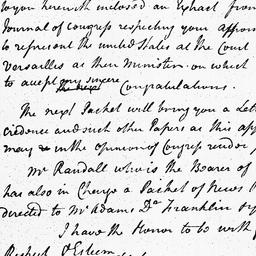 to you herewith inclosed an Extract from
Journal of Congress respecting your appoin
to represent the united States at the Court
Versailles as their Minister, on which
to accept my sincere Congratulations.
The next Packet will bring you a Lett
credence and such other Papers as this app
may in the opinion of Congress render
Mr Randall who is the Bearer of
has also in Charge a Packet of News P
directed to Mr Adams, Dr Franklin
I have the Honor to be with
Respect & Esteem